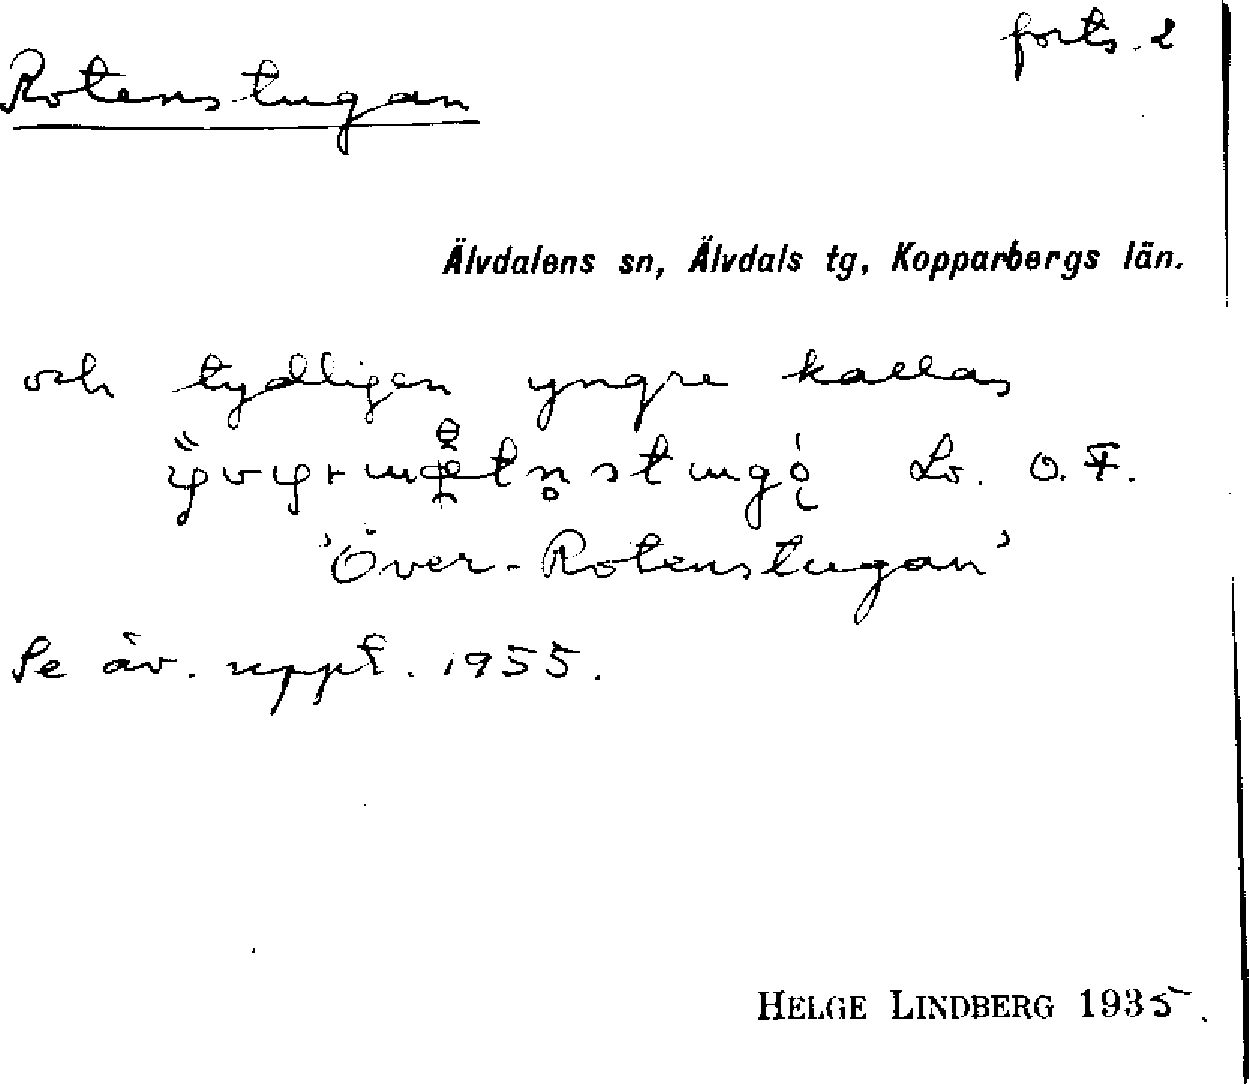 forts. 2
Rotenstugan
Älvdalens sn, Älvdals tg, Kopparbergs län.
och tydligen yngre kallas
Lv. O.F.
'Över-Rotenstugan'
Se äv. uppt. 1955.
HELGE LINDBERG 1935.